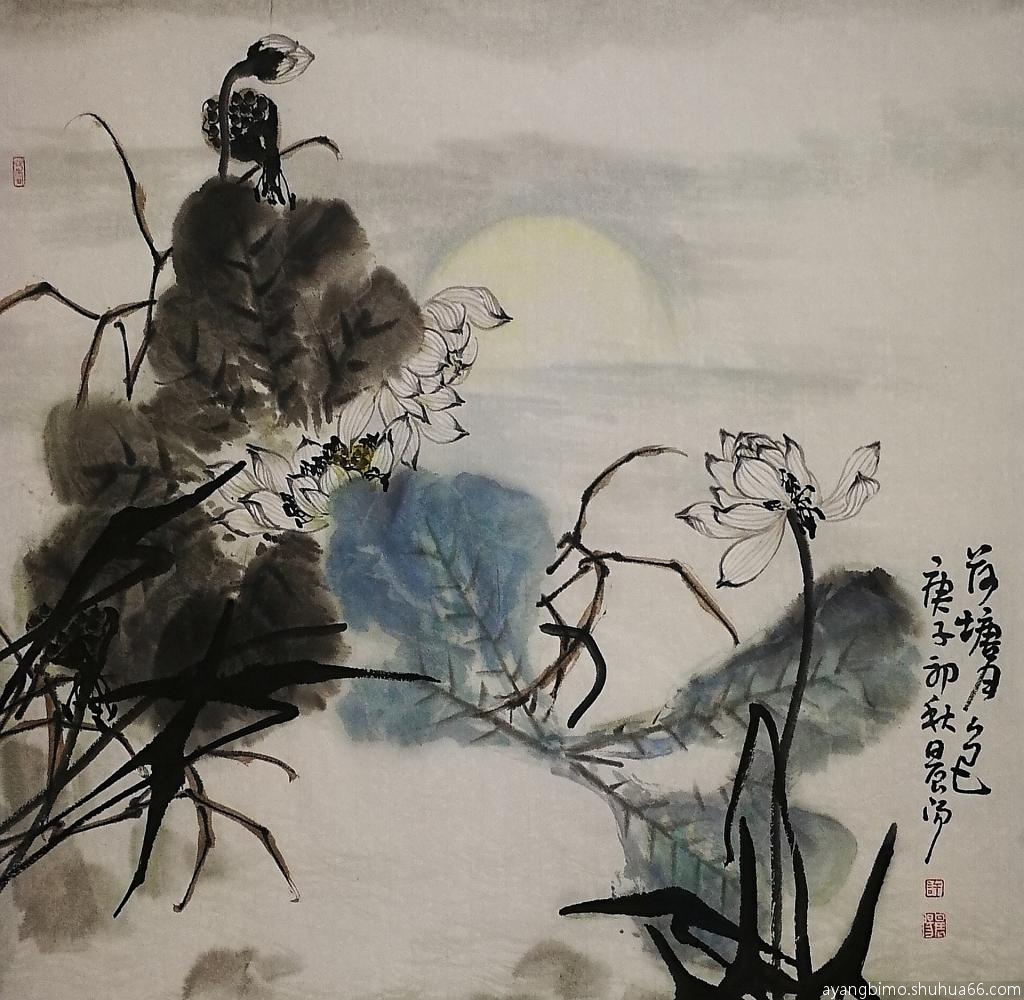 荷塘月色
庚子初秋晨
許
ayangbimo.shuhua66.com